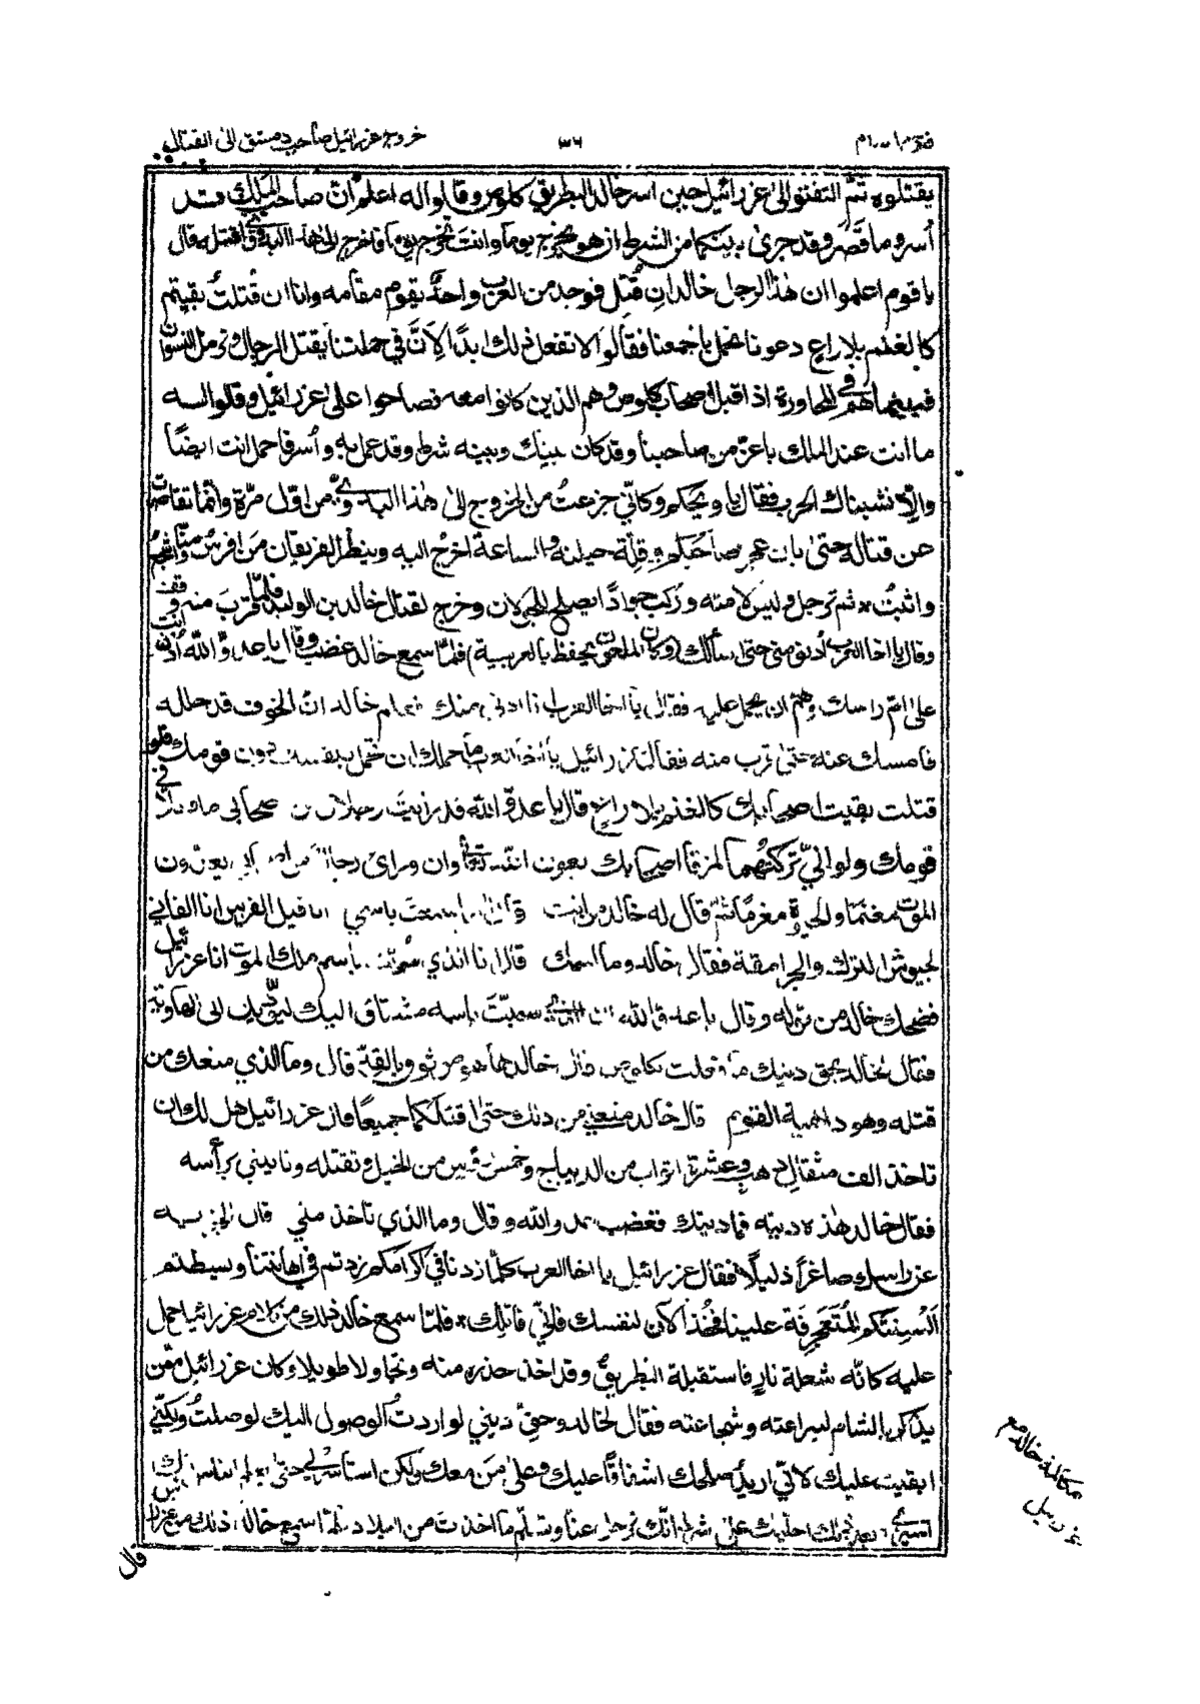 فتوح الشام ٣٦ خروج عزرائيل صاحب دمشق الى القتال
يقتلوه ثم التفتوا الى عزرائيل حين اسر خالد البطريق كلوص وقالوا له اعلم ان صاحب الملك قد
أسر وما قصر وقد جرى بينكما من الشرط ان هو يخرج يوما وانت تخرج يوما فاخرج الى هذا البدوي فاقتله قال
يا قوم اعلموا ان هذا الرجل خالد ان قُتل فوجد من العرب واحدٌ يقوم مقامه وانا ان قُتلت بقيتم
كالغنم بلا راعٍ دعونا نحمل باجمعنا فقالوا لا نفعل ذلك ابدًا لانَّ في حملتنا يقتل الرجال وترمل النسوان
فبينما هم في المحاورة اذ اقبل اصحاب كلوص وهم الذين كانوا معه فصاحوا على عزرائيل وقالوا له
ما انت عند الملك باعز من صاحبنا وقد كان بينك وبينه شرط وقد عمل به وأسر فاحمل انت ايضًا
والا نشبناك الحرب فقال يا ويحكم وكاني جزعتُ من الخروج الى هذا البدوي من اول مرة وانما تقاصرت
عن قتاله حتى بان عجز صاحبكم وقلة حيلته والساعة اخرج اليه وينظر الفريقان من افرس منا واشجع
واثبت ثم ترجل ولبس لامته وركب جوادًا يصلح للجولان وخرج لقتال خالد بن الوليد فلما قرب منه وقف
وقال يا اخا العرب أدنو مني حتى اسألك (وكان الملعون يحفظ بالعربية) فلمّا سمع خالد غضب وقال يا عدو الله أدن انت
على ام راسك وهم ان يحمل عليه فقال يا اخا العرب انا ادنو منك فعلم خالد انّ الخوف قد دخله
فامسك عنه حتى قرب منه فقال عزرائيل يا اخا العرب ما حملك ان تحمل بنفسك دون قومك فلو
قتلت بقيت اصحابك كالغنم بلا راعٍ قال يا عدو الله قد رايت رجلان من اصحابي ما صنعا في
قومك ولو اني تركتهما لمزقا اصحابك بعون الله تعالى وان ورائي رجالا يعدّون
الموت مغنما والحيوة مغرمًا ثم قال له خالد من انت قال اما سمعت باسمي انا قيل الفرس انا الفاني
لجيوش الترك والجرامقة فقال خالد وما اسمك قال انا الذي سُمّيت باسم ملك الموت انا عزرائيل
فضحك خالد من قوله وقال يا عدو الله ان الذي سميتَ باسمه مشتاق اليك ليؤديك الى الهاوية
فقال لخالد بحق دينك ما فعلت بكلوص قال خالد ها هو موثوق بالقدّ قال وما الذي منعك من
قتله وهو داهية القوم قال خالد منعني من ذلك حتى اقتلكما جميعًا قال عزرائيل هل لك ان
تاخذ الف مثقال ذهب وعشرة اثواب من الديباج وخمس فرس من الخيل وتقتله وتاتيني برأسه
فقال خالد هذه ديته فما ديتك فغضب عدو الله وقال وما الذي تاخذ مني قال الجزية
عن راسك صاغراً ذليلًا فقال عزرائيل يا اخا العرب كلما زدنا في اكرامكم زدتم في اهانتنا وبسطتم
اَلْسِنتكم المُتَعَجرِفَة علينا فخُذ الآن لنفسك فانّي قاتلك فلمّا سمع خالد ذلك من كلام عزرائيل حمل
عليه كانّه شعلة نار فاستقبله البطريق وقد اخذ حذره منه وتجاولا طويلا وكان عزرائيل ممن
يذكر بالشام لبراعته وشجاعته فقال لخالد وحق ديني لو اردتُ الوصول اليك لوصلتُ ولكني
ابقيت عليك لاني اريد صلحك اشفاقًا عليك وعلى من معك ولكن استاسر لي حتى يعلم الناس انك
اسيري بعد ذلك اخليك على شرط انك ترحل عنا وتسلّم ما اخذت من البلاد فلما سمع خالد ذلك من عزرائيل
قال
مكالمة خالد مع
عزرائيل